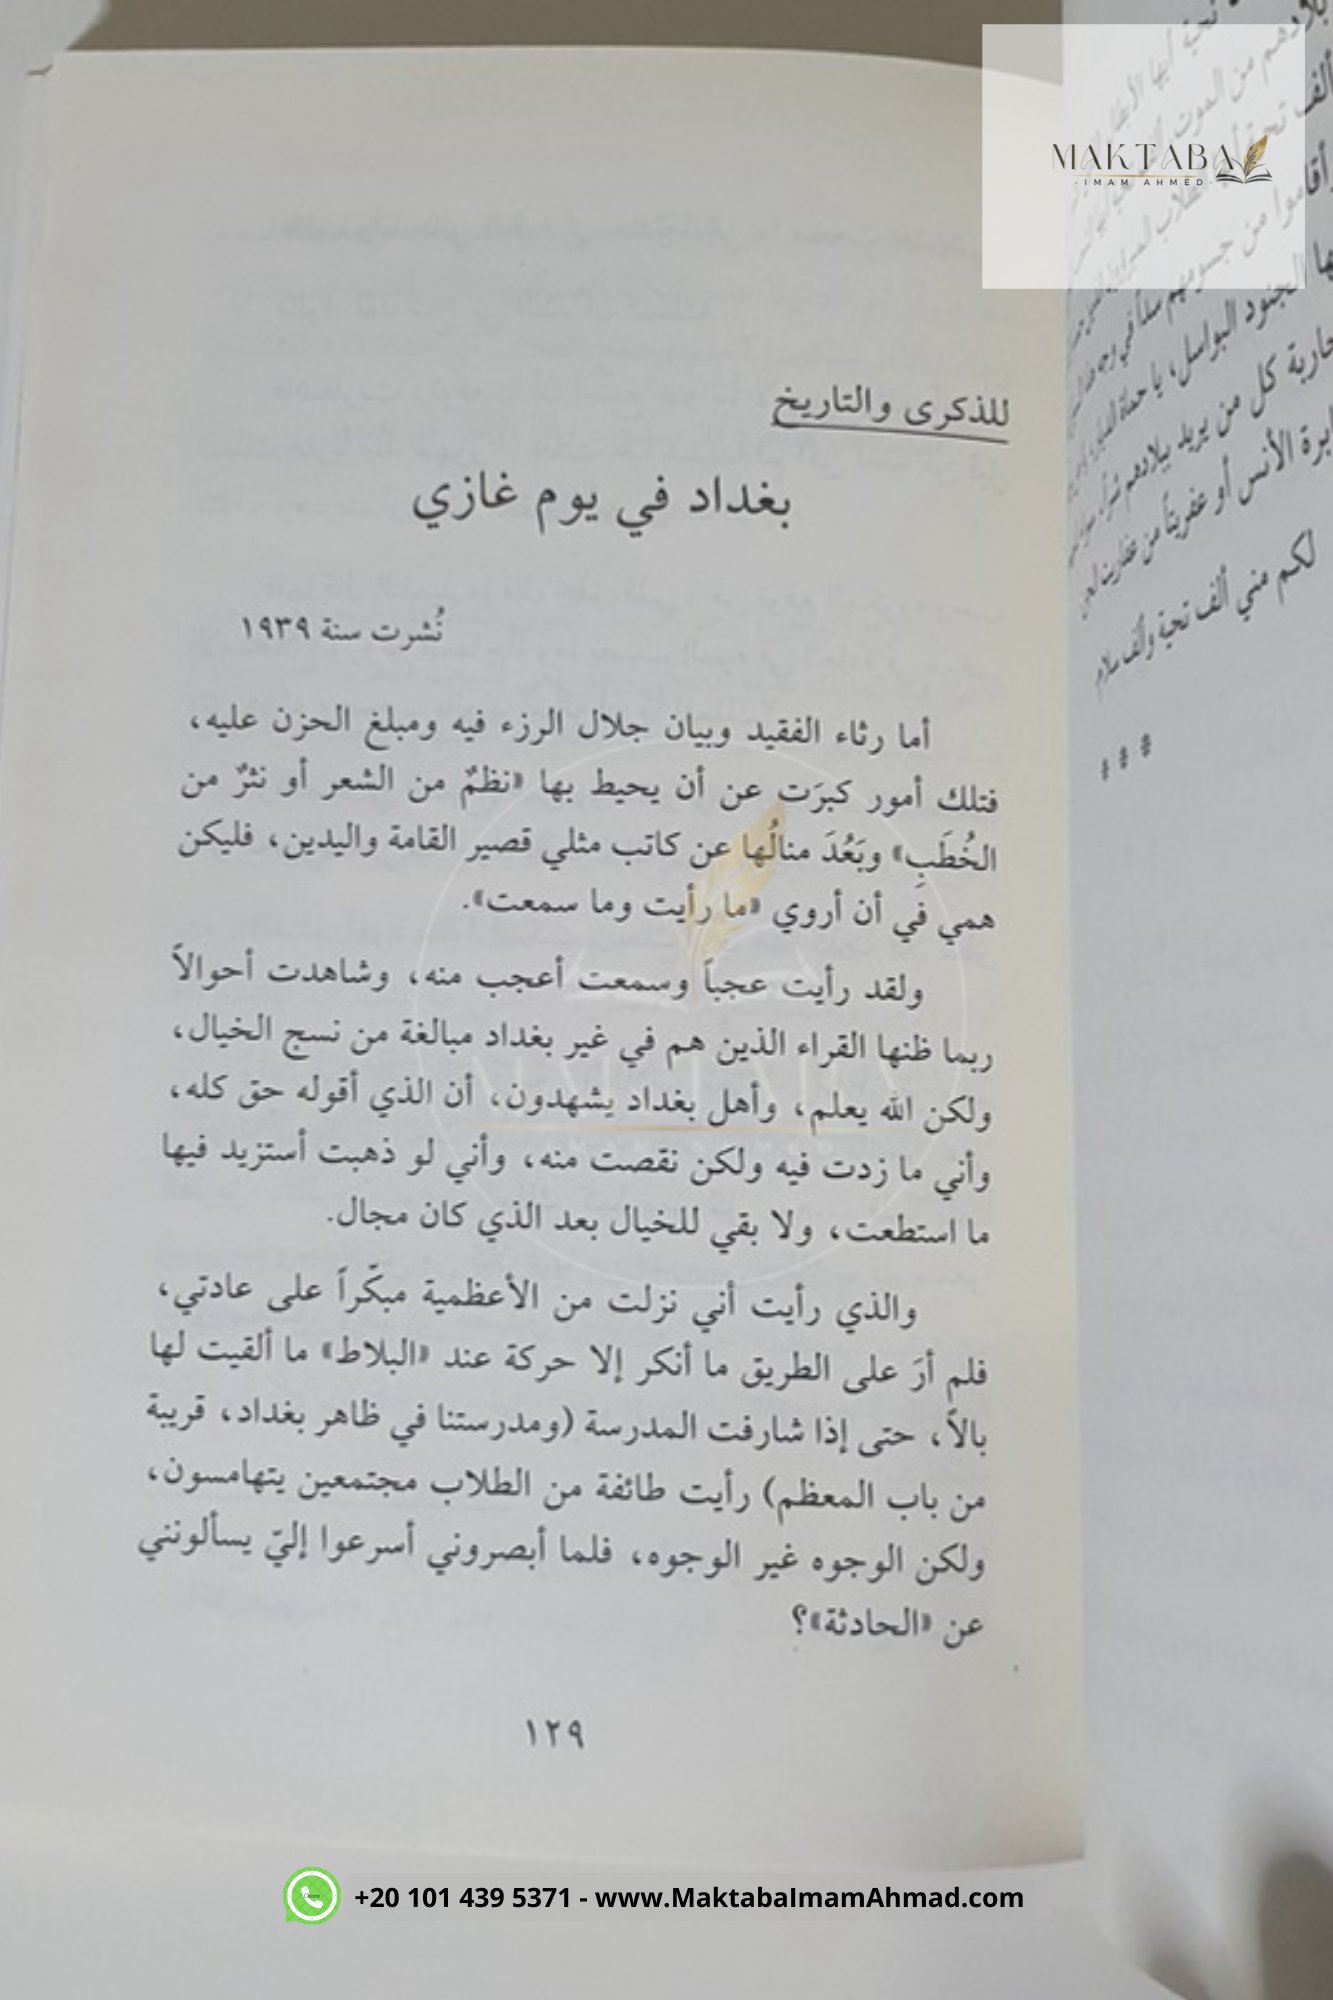 MAKTABA
IMAM AHMED
للذكرى والتاريخ
بغداد في يوم غازي
نُشرت سنة ١٩٣٩
أما رثاء الفقيد وبيان جلال الرزء فيه ومبلغ الحزن عليه،
فتلك أمور كبرَت عن أن يحيط بها «نظمٌ من الشعر أو نثرٌ من
الخُطَبِ» وبَعُدَ منالُها عن كاتب مثلي قصير القامة واليدين، فليكن
همي في أن أروي «ما رأيت وما سمعت».
ولقد رأيت عجباً وسمعت أعجب منه، وشاهدت أحوالاً
ربما ظنها القراء الذين هم في غير بغداد مبالغة من نسج الخيال،
ولكن الله يعلم، وأهل بغداد يشهدون، أن الذي أقوله حق كله،
وأني ما زدت فيه ولكن نقصت منه، وأني لو ذهبت أستزيد فيها
ما استطعت، ولا بقي للخيال بعد الذي كان مجال.
والذي رأيت أني نزلت من الأعظمية مبكّراً على عادتي،
فلم أرَ على الطريق ما أنكر إلا حركة عند «البلاط» ما ألقيت لها
بالاً، حتى إذا شارفت المدرسة (ومدرستنا في ظاهر بغداد، قريبة
من باب المعظم) رأيت طائفة من الطلاب مجتمعين يتهامسون،
ولكن الوجوه غير الوجوه، فلما أبصروني أسرعوا إليّ يسألونني
عن «الحادثة»؟
١٢٩
تحية أيها
بلادهم من الموت
ألف تحية
أقاموا من جسومهم سداً في وجه
الجنود البواسل، يا حماة
كل من يريد ببلادهم شراً،
الأنس أو عفريتاً من عفاريت الجن
لكم مني ألف تحية وألف سلام
* * *
+20 101 439 5371 - www.MaktabaImamAhmad.com